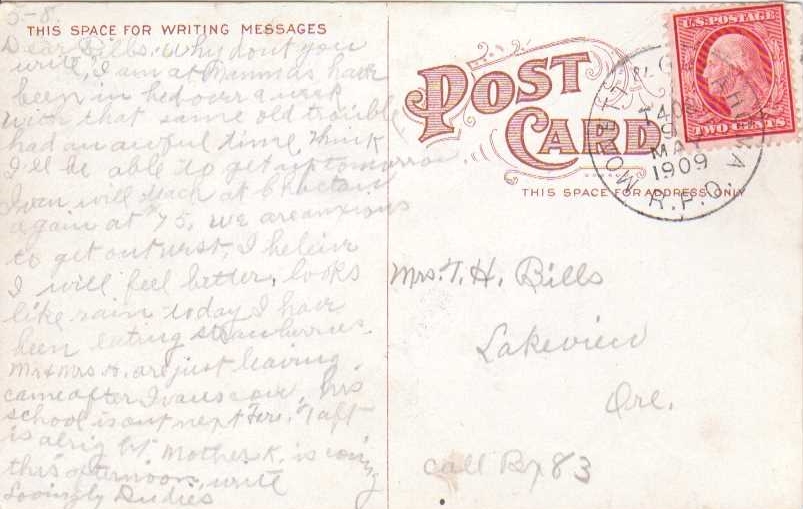 5-8.
THIS SPACE FOR WRITING MESSAGES
Dear Bills. Why don't you
write, I am at Mammas have
been in bed over a week
with that same old trouble
had an awful time think
I'll be able to get up tomorrow
Ivan will teach at
again at 75, we are anxious
to get out west, I beleive
I will feel better, looks
like rain today I have
been eating strawberries.
Mr & Mrs are just leaving
came after Ivans cow, his
school is out next
is alright. Mother K. is coming
this afternoon, write
Lovingly Dudies
POST
CARD
THIS SPACE FOR ADDRESS ONLY
U.S. POSTAGE
TWO CENTS
MAY
1909
R.P.O.
Mrs. T. H. Bills
Lakeview
Ore.
call Bx 83